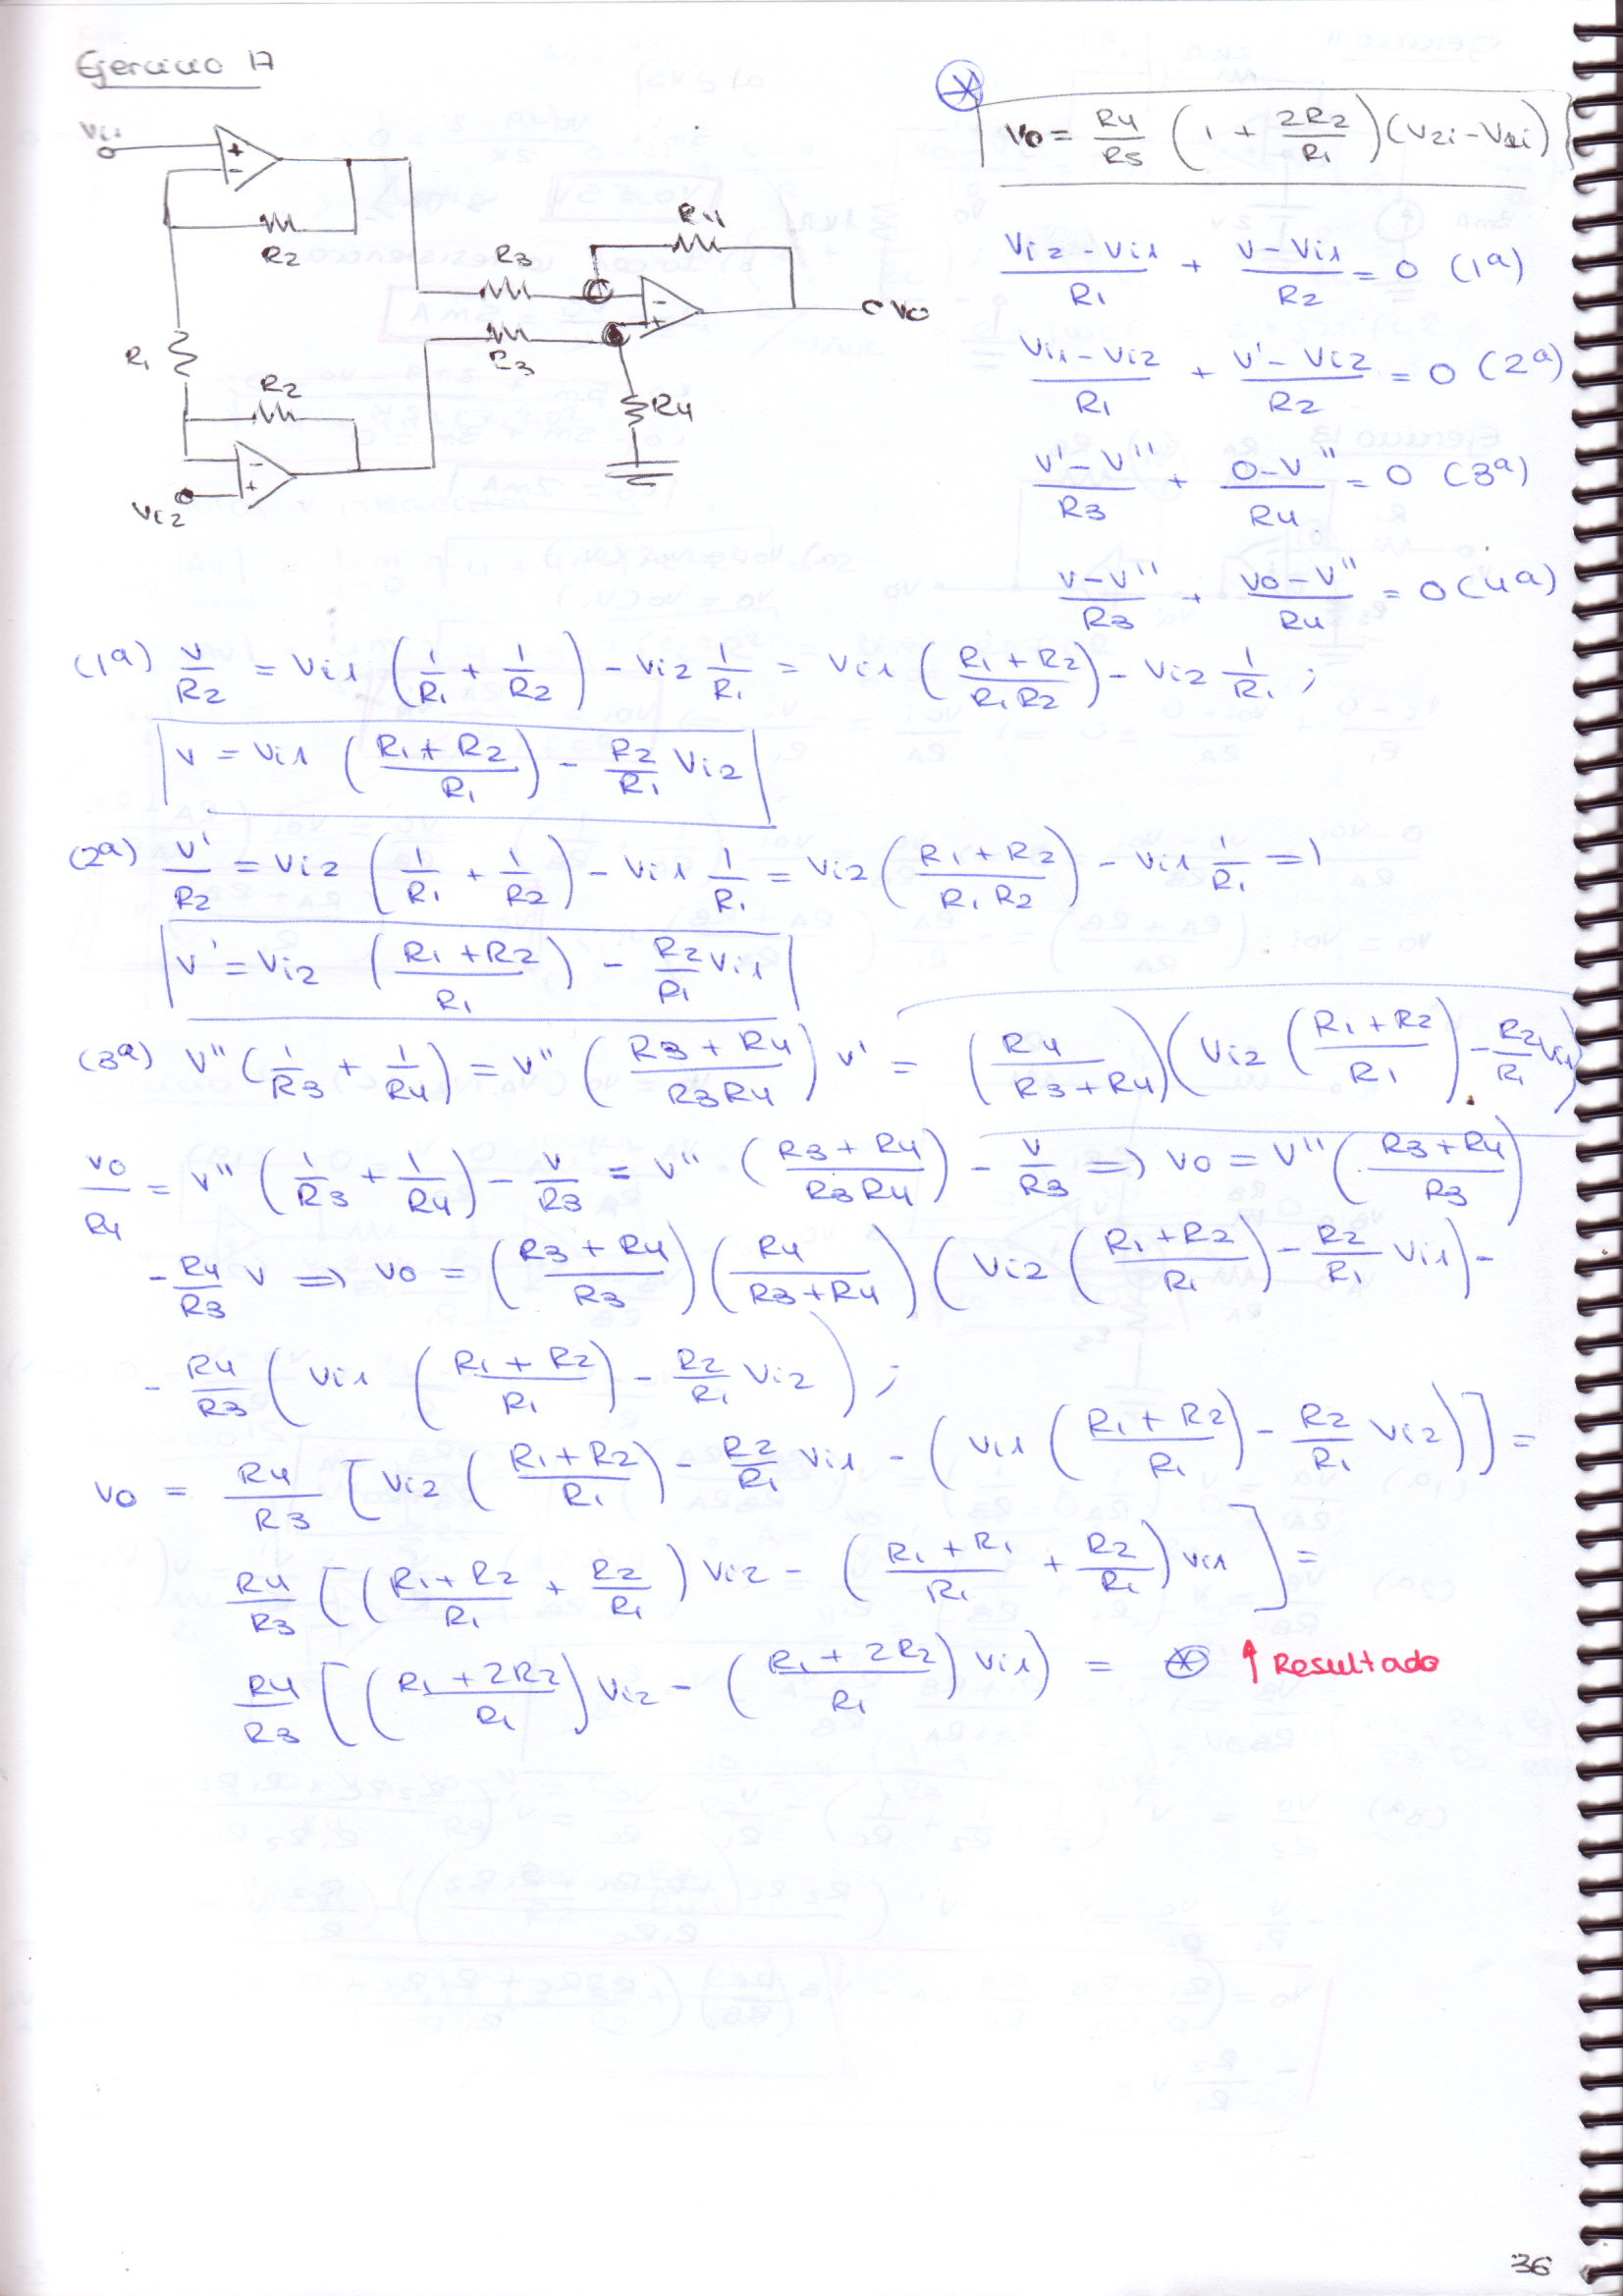 Ejercicio 17
Vi1
R2
R1
R2
Vi2
R3
R3
R4
R4
Vo
* Vo = R4/R3 (1 + 2R2/R1)(V2i - V1i)
(Vi2 - Vi1)/R1 + (V - Vi1)/R2 = 0 (1ª)
(Vi1 - Vi2)/R1 + (V' - Vi2)/R2 = 0 (2ª)
(V' - V'')/R3 + (0 - V'')/R4 = 0 (3ª)
(V - V'')/R3 + (Vo - V'')/R4 = 0 (4ª)
(1ª) V/R2 = Vi1 (1/R1 + 1/R2) - Vi2 1/R1 = Vi1 ((R1 + R2)/(R1 R2)) - Vi2 1/R1 ;
V = Vi1 ((R1 + R2)/R1) - R2/R1 Vi2
(2ª) V'/R2 = Vi2 (1/R1 + 1/R2) - Vi1 1/R1 = Vi2 ((R1 + R2)/(R1 R2)) - Vi1 1/R1 =>
V' = Vi2 ((R1 + R2)/R1) - R2/R1 Vi1
(3ª) V'' (1/R3 + 1/R4) = V'' ((R3 + R4)/(R3 R4)) V' = (R4/(R3 + R4)) (Vi2 ((R1 + R2)/R1) - R2/R1 Vi1)
Vo/R4 = V'' (1/R3 + 1/R4) - V/R3 = V'' ((R3 + R4)/(R3 R4)) - V/R3 => Vo = V'' ((R3 + R4)/R3)
- R4/R3 V => Vo = ((R3 + R4)/R3) (R4/(R3 + R4)) (Vi2 ((R1 + R2)/R1) - R2/R1 Vi1) -
- R4/R3 (Vi1 ((R1 + R2)/R1) - R2/R1 Vi2) ;
Vo = R4/R3 [Vi2 ((R1 + R2)/R1) - R2/R1 Vi1 - (Vi1 ((R1 + R2)/R1) - R2/R1 Vi2)] =
R4/R3 [((R1 + R2)/R1 + R2/R1) Vi2 - ((R1 + R1)/R1 + R2/R1) Vi1] =
R4/R3 [((R1 + 2R2)/R1) Vi2 - ((R1 + 2R2)/R1) Vi1) = * ↑ Resultado
36